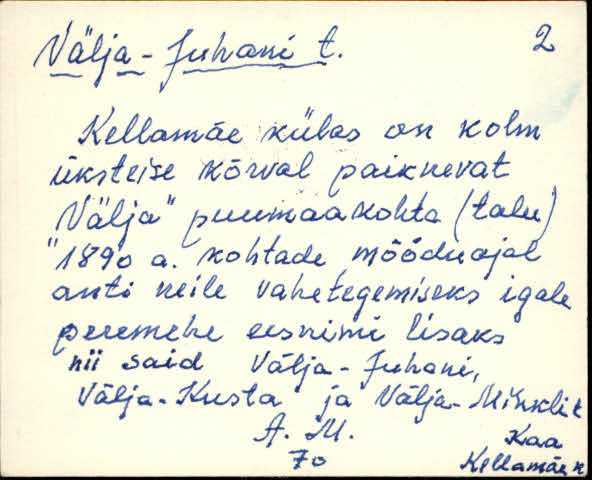 Välja-Juhani t. 2
Kellamäe külas on kolm
üksteise kõrval paiknevat
"Välja" puumaakohta (talu)
1890 a. kohtade mõõduajal
anti neile vahetegemiseks igale
peremehe eesnimi lisaks
nii said Välja-Juhani,
Välja-Kusta ja Välja-Mihkli t
A. M. Kaa
70 Kellamäe k